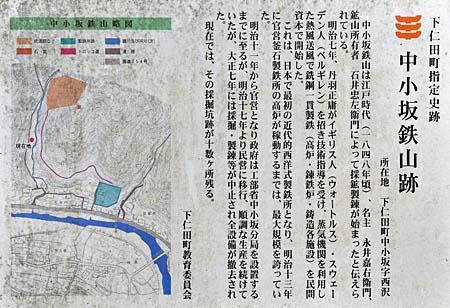 下仁田町指定史跡
中小坂鉄山跡
所在地 下仁田町中小坂字西沢
中小坂鉄山は江戸時代(一八四八年頃)、名主 永井嘉右衛門、
鉱山所有者 石井忠左衛門によって採鉱製錬が始まったと伝えら
れている。
明治七年、丹羽正庸がイギリス人(ウォートルス)・スウェー
デン人(ベルギレン)を招き技術指導を受け、蒸気機関を利用し
た熱風送風で銑鋼一貫製鉄(高炉・錬鉄炉・鋳造各施設)を民間
資本で開始した。
これは、日本で最初の近代的西洋式製鉄所となり、明治十三年
に官営釜石製鉄所の高炉が稼動するまでは、最大規模を誇ってい
た。
明治十一年から官営となり政府は工部省中小坂分局を設置する
までに至るが、明治十七年より民営に移行、順調な生産を続けて
いたが、大正七年には採掘・製錬等が中止され全設備が撤去され
現在では、その採掘坑跡が十数ヶ所残る。
下仁田町教育委員会
中小坂鉄山略図
現在地